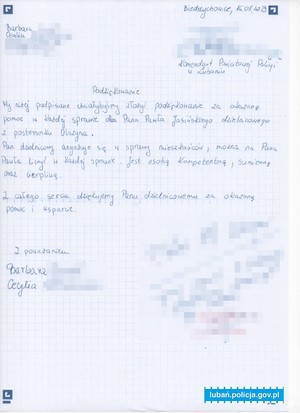 Biedrzychowice, 15.01.2023
Barbara
Cecylia
Komendant Powiatowy Policji
w Lubaniu
Podziękowanie
My niżej podpisane chciałybyśmy złożyć podziękowanie za okazaną
pomoc w każdej sprawie dla Pana Pawła Jasińskiego dzielnicowego
z posterunku Olszyna.
Pan dzielnicowy angażuje się w sprawy mieszkańców, można na Pana
Pawła liczyć w każdej sprawie. Jest osobą kompetentną, sumienną
oraz cierpliwą.
Z całego serca dziękujemy Panu dzielnicowemu za okazaną
pomoc i wsparcie.
Z poważaniem
Barbara
Cecylia
luban.policja.gov.pl